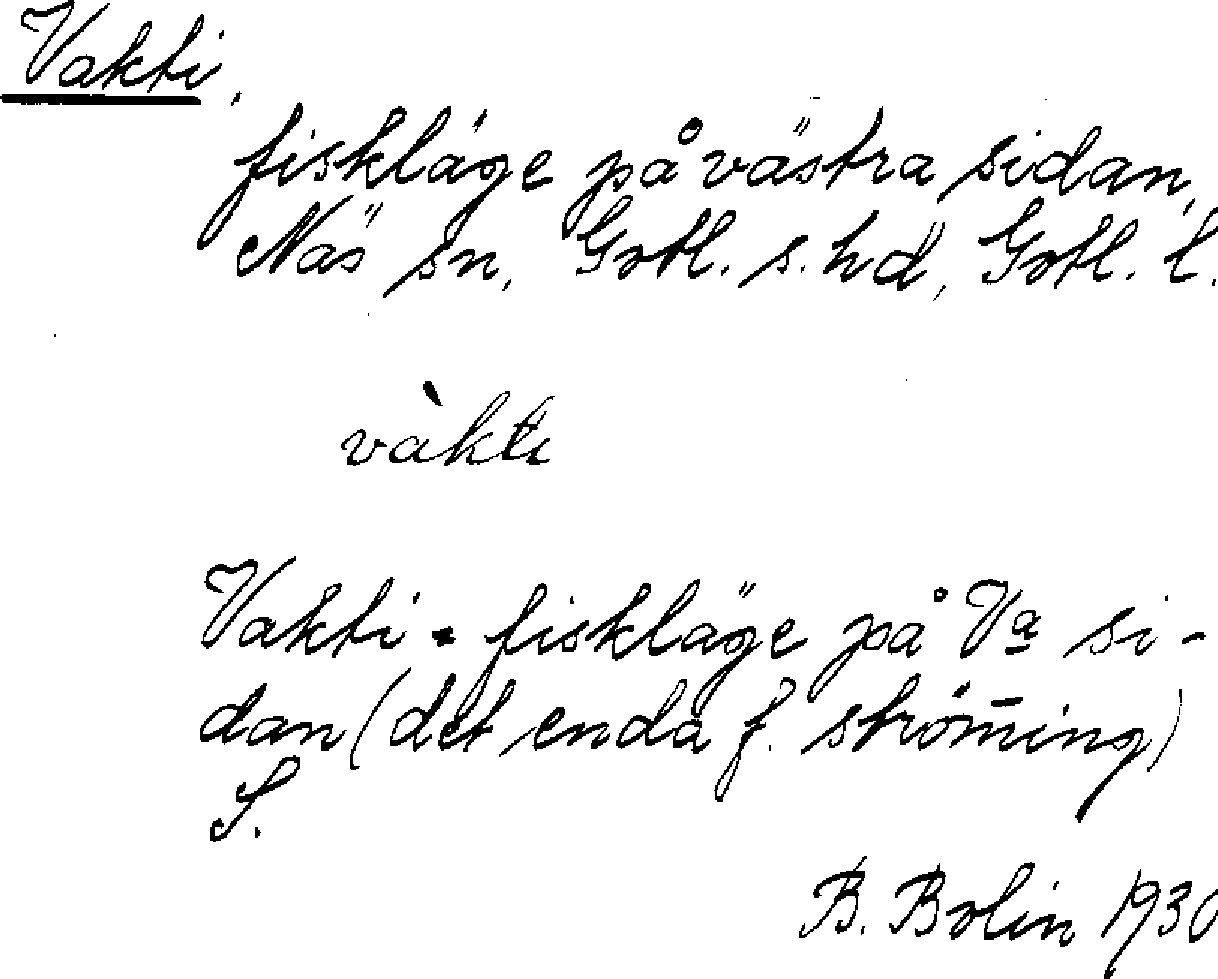 Vakti,
fiskläge på västra sidan,
Näs sn, Gotl. s. hd, Gotl. l.
vàkti
Vakti = fiskläge på Va si-
dan (det enda f. ströming)
S.
B. Bolin 1930